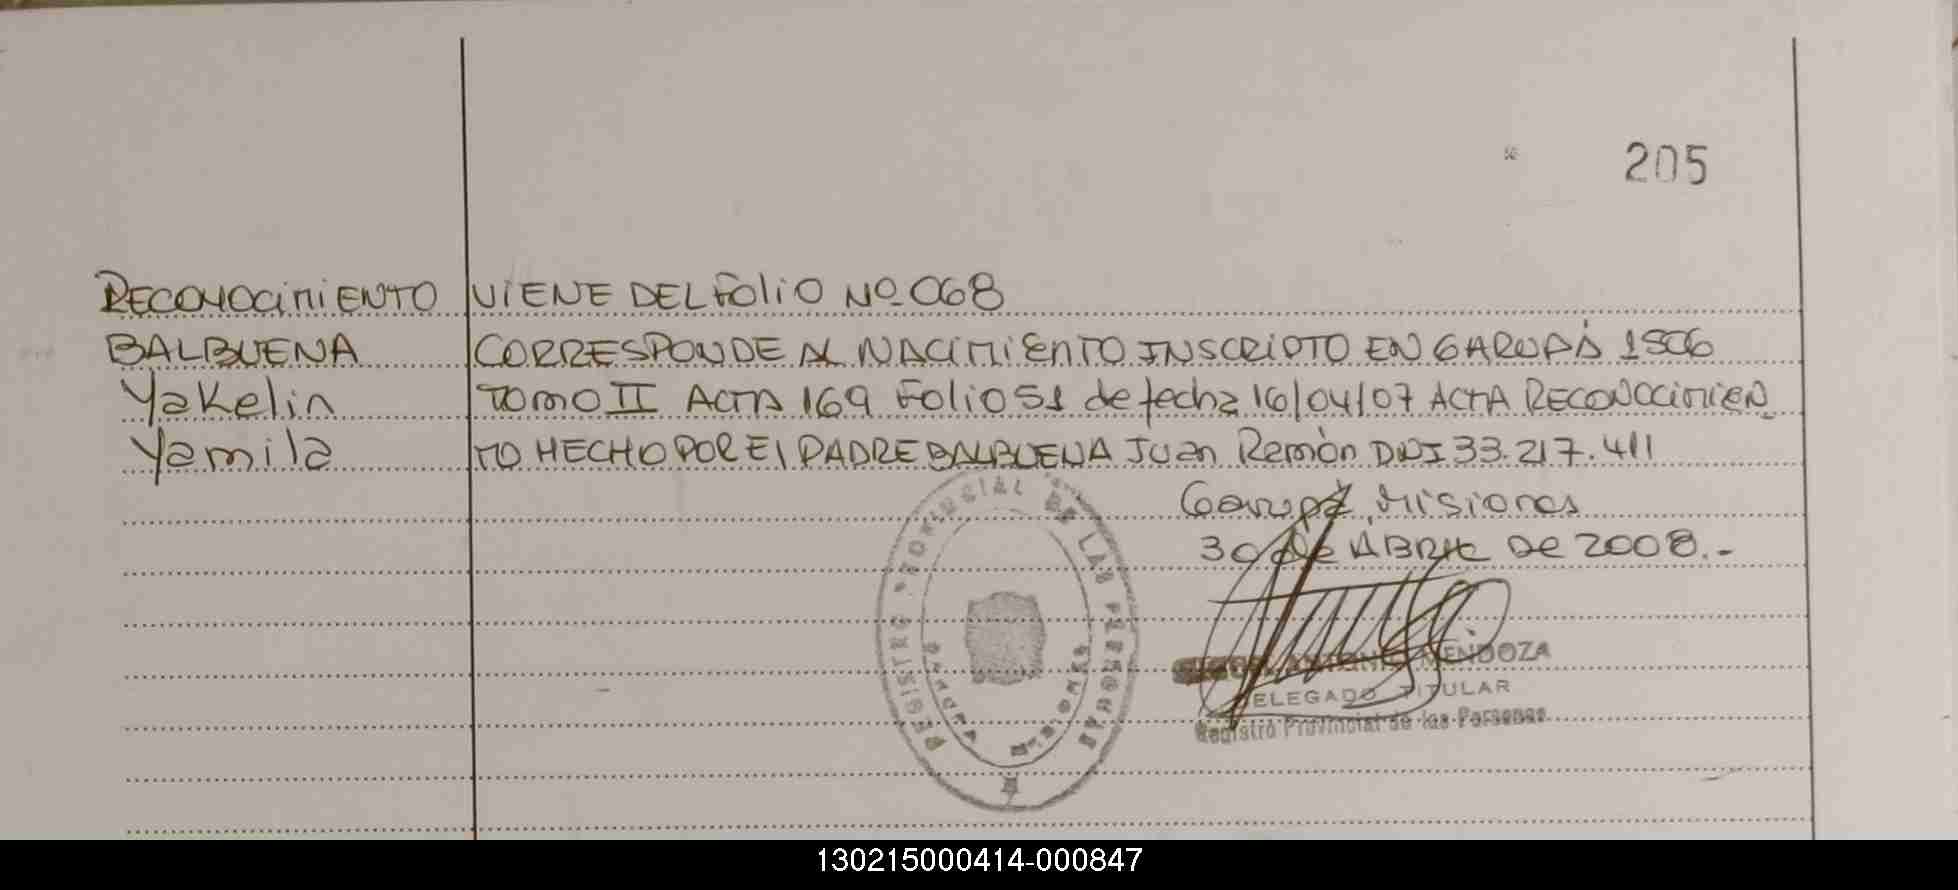 205
RECONOCIMIENTO VIENE DEL FOLIO Nº 068
BALBUENA CORRESPONDE AL NACIMIENTO INSCRIPTO EN GARUPÁ 1506
Yakelin TOMO II ACTA 169 FOLIO 51 de fecha 16/04/07 ACTA RECONOCIMIEN
Yamila TO HECHO POR El PADRE BALBUENA Juan Ramón DNI 33.217.411
Garupá, Misiones
30 de ABRIL DE 2008.-
REGISTRO PROVINCIAL DE LAS PERSONAS
GARUPA MISIONES
ANTONIO MENDOZA
DELEGADO TITULAR
Registro Provincial de las Personas
130215000414-000847